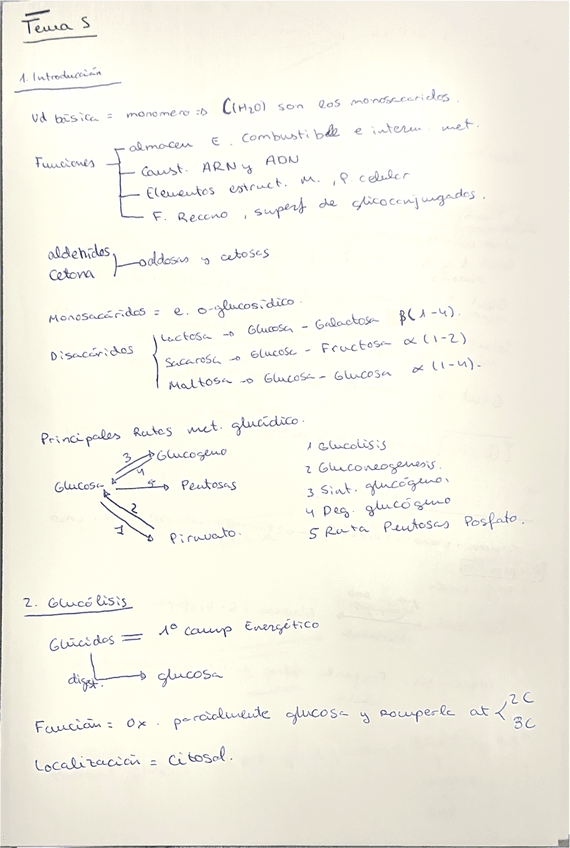 Tema 5
1. Introducción
Ud básica = monomero => C(H2O) son los monosacaridos.
Funciones
almacen E. combustible e interm. met.
Const. ARN y ADN
Elementos estruct. M. , P. celular
F. Recono , superf de glicoconjugados.
aldehidos
cetona
aldosas y cetosas
Monosacáridos = e. o-glucosídico.
Disacáridos
Lactosa → Glucosa - Galactosa β(1-4).
Sacarosa → Glucosa - Fructosa α(1-2)
Maltosa → Glucosa - Glucosa α(1-4).
Principales Rutas met. glucídico.
3 Glucogeno
4
Glucosa 5 Pentosas
2
1 Piruvato.
1 Glucolisis
2 Gluconeogenesis.
3 Sint. glucógeno.
4 Deg. glucógeno
5 Ruta Pentosas Posfato.
2. Glucólisis
Glúcidos = 1º comp Energético
digst. → glucosa
Función = Ox. parcialmente glucosa y romperla at 2C
3C
Localización = Citosol.